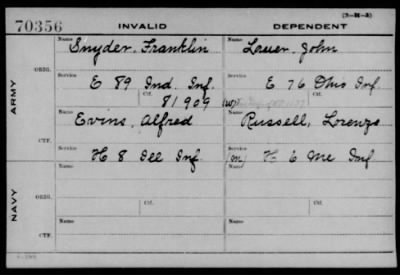 (3-H-3)
70356 INVALID DEPENDENT
Name Snyder, Franklin Name Lauer, John
ORIG. Service E 89 Ind. Inf. Service E 76 Ohio Inf.
Ctf. 81909 Ctf.
ARMY
Name Evins, Alfred Name Russell, Lorenzo
CTF. Service H 8 Ill Inf. Service (M) H 6 Me Inf
Name Name
ORIG.
Ctf. Ctf.
NAVY
Name Name
CTF.